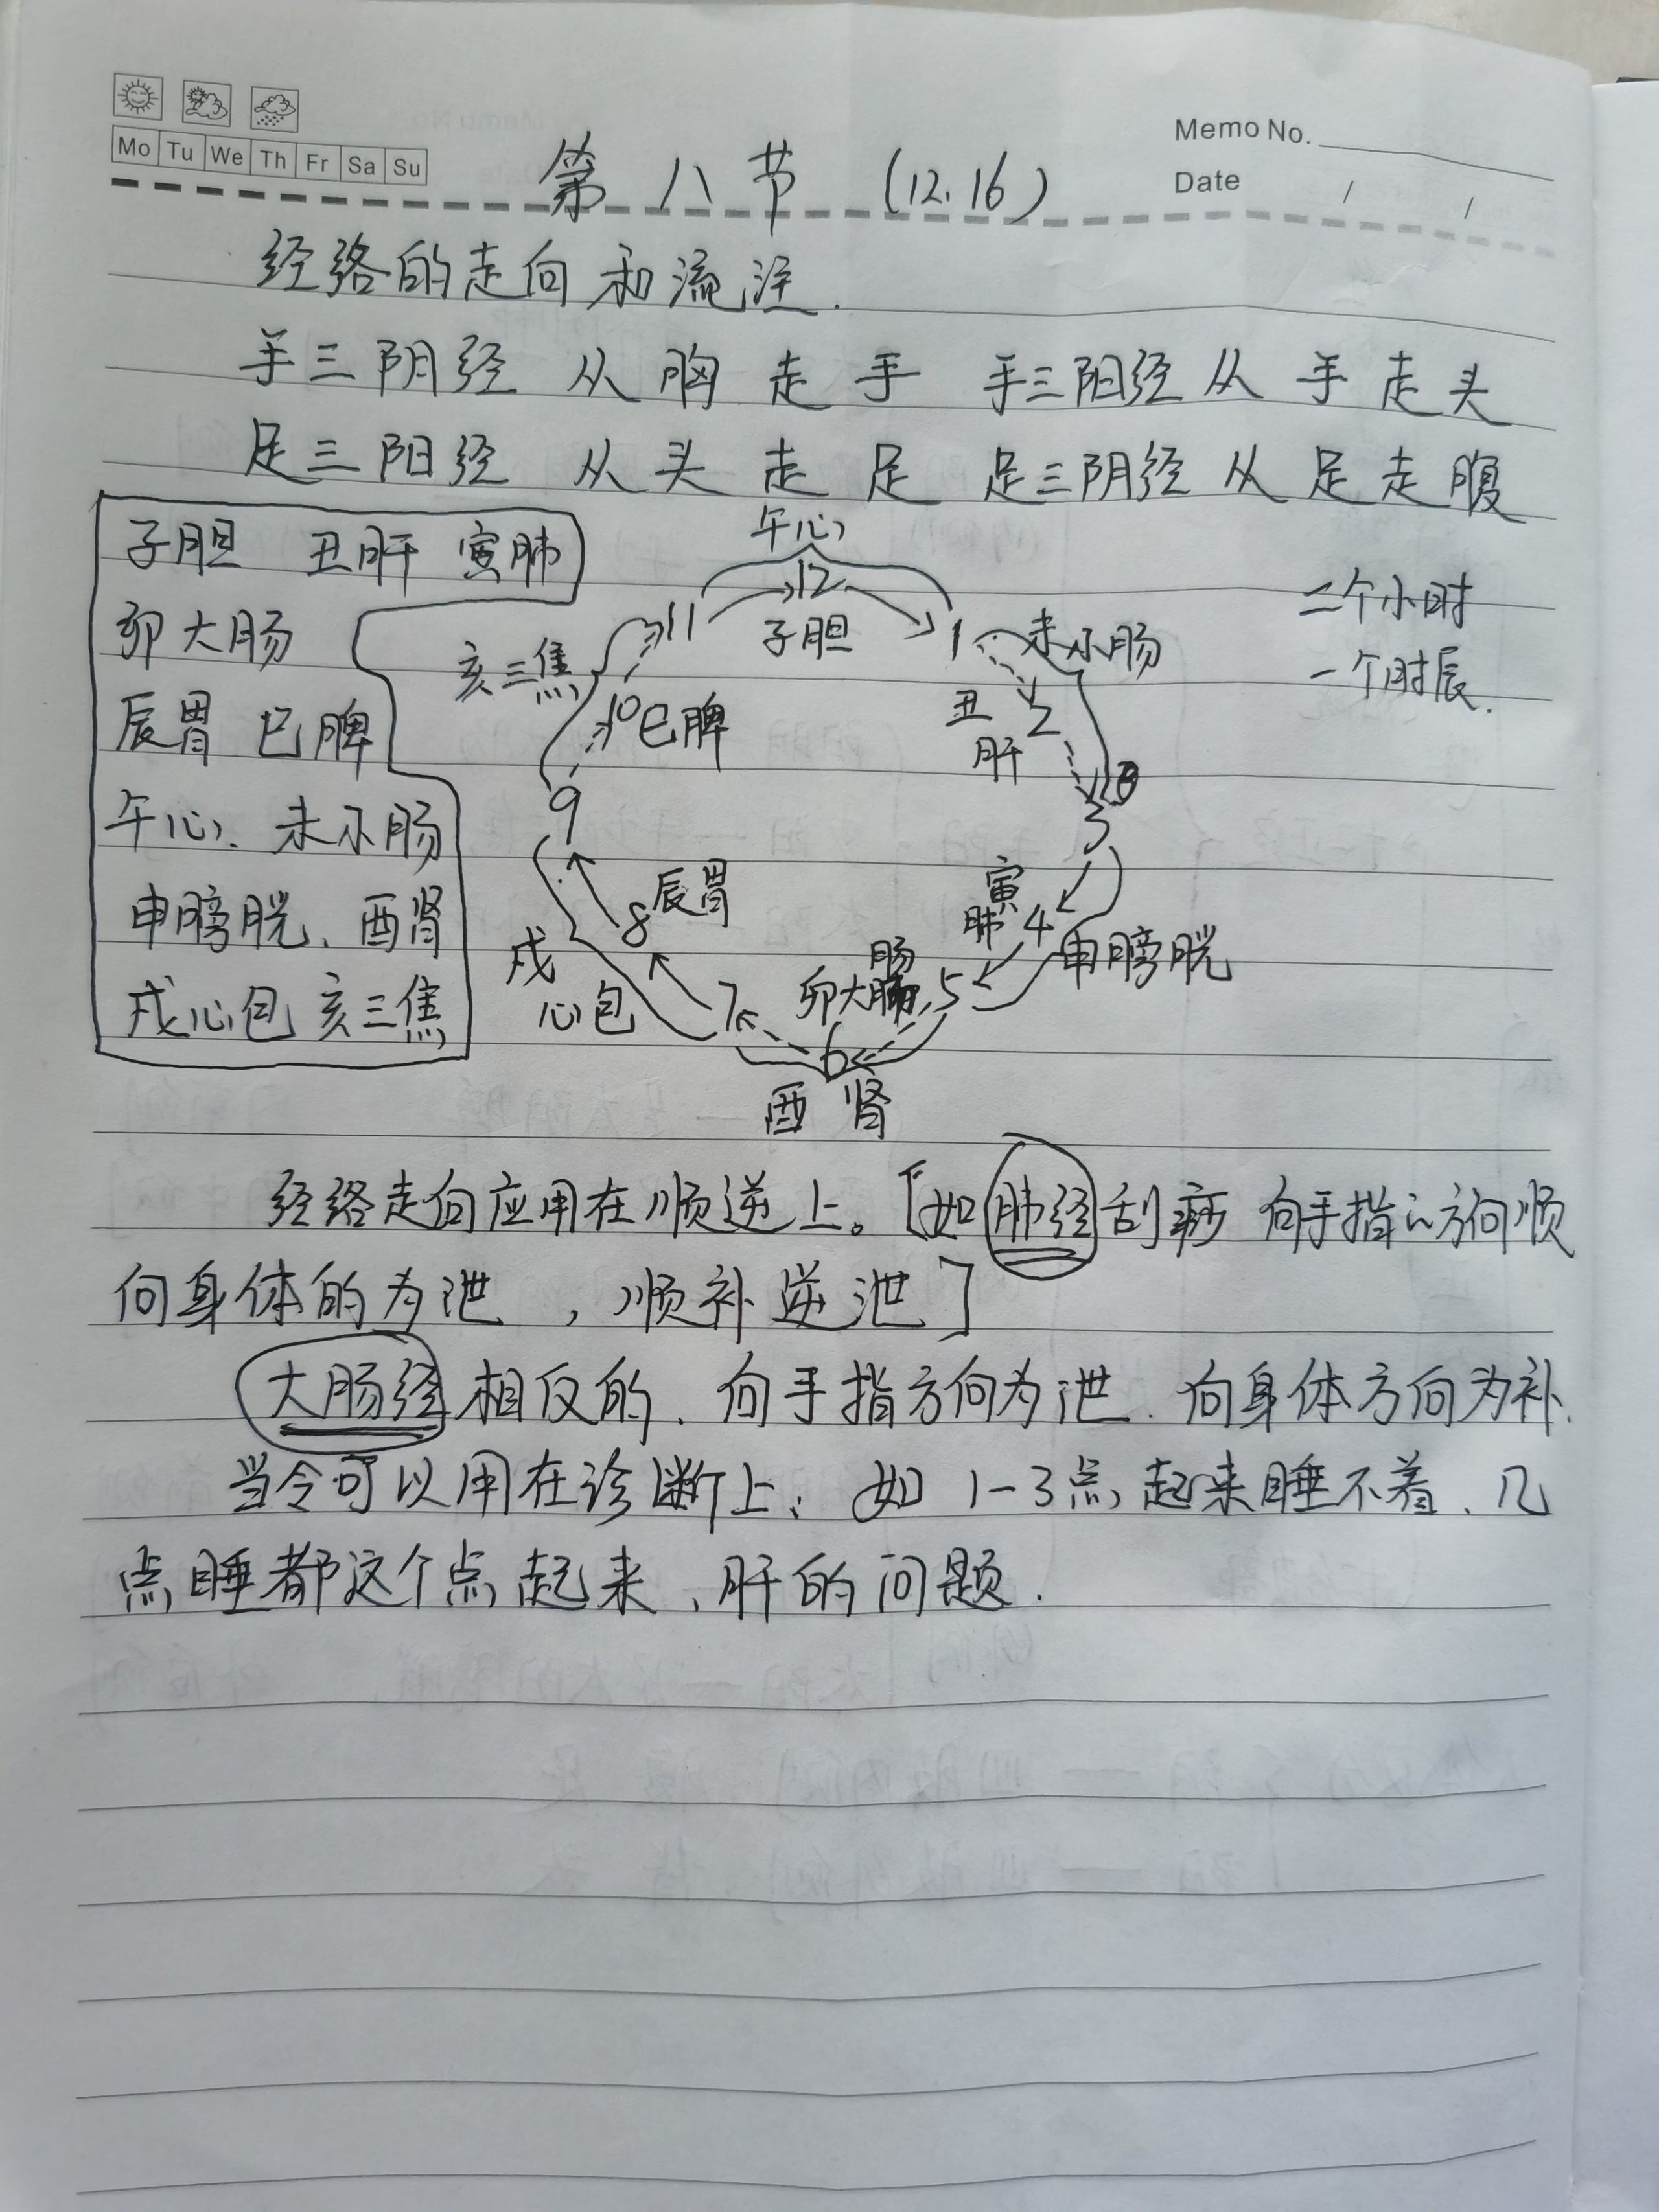 Mo Tu We Th Fr Sa Su
Memo No.
Date / /
第八节 (12.16)
经络的走向和流注.
手三阴经 从胸走手 手三阳经从手走头
足三阳经 从头走足 足三阴经从足走腹
子胆 丑肝 寅肺
卯大肠
辰胃 巳脾
午心、未小肠
申膀胱、酉肾
戌心包 亥三焦
午心
12
子胆
11
1
未小肠
亥三焦
10 巳脾
丑肝
2
9
3
辰胃
8
寅肺
4
申膀胱
戌心包
7
卯大肠
5
6
酉肾
二个小时
一个时辰.
经络走向应用在顺逆上。[如肺经刮痧 向手指的方向顺
向身体的为泄,顺补逆泄]
大肠经相反的、向手指方向为泄.向身体方向为补.
当令可以用在诊断上、如1-3点起来睡不着、几
点睡都这个点起来、肝的问题.